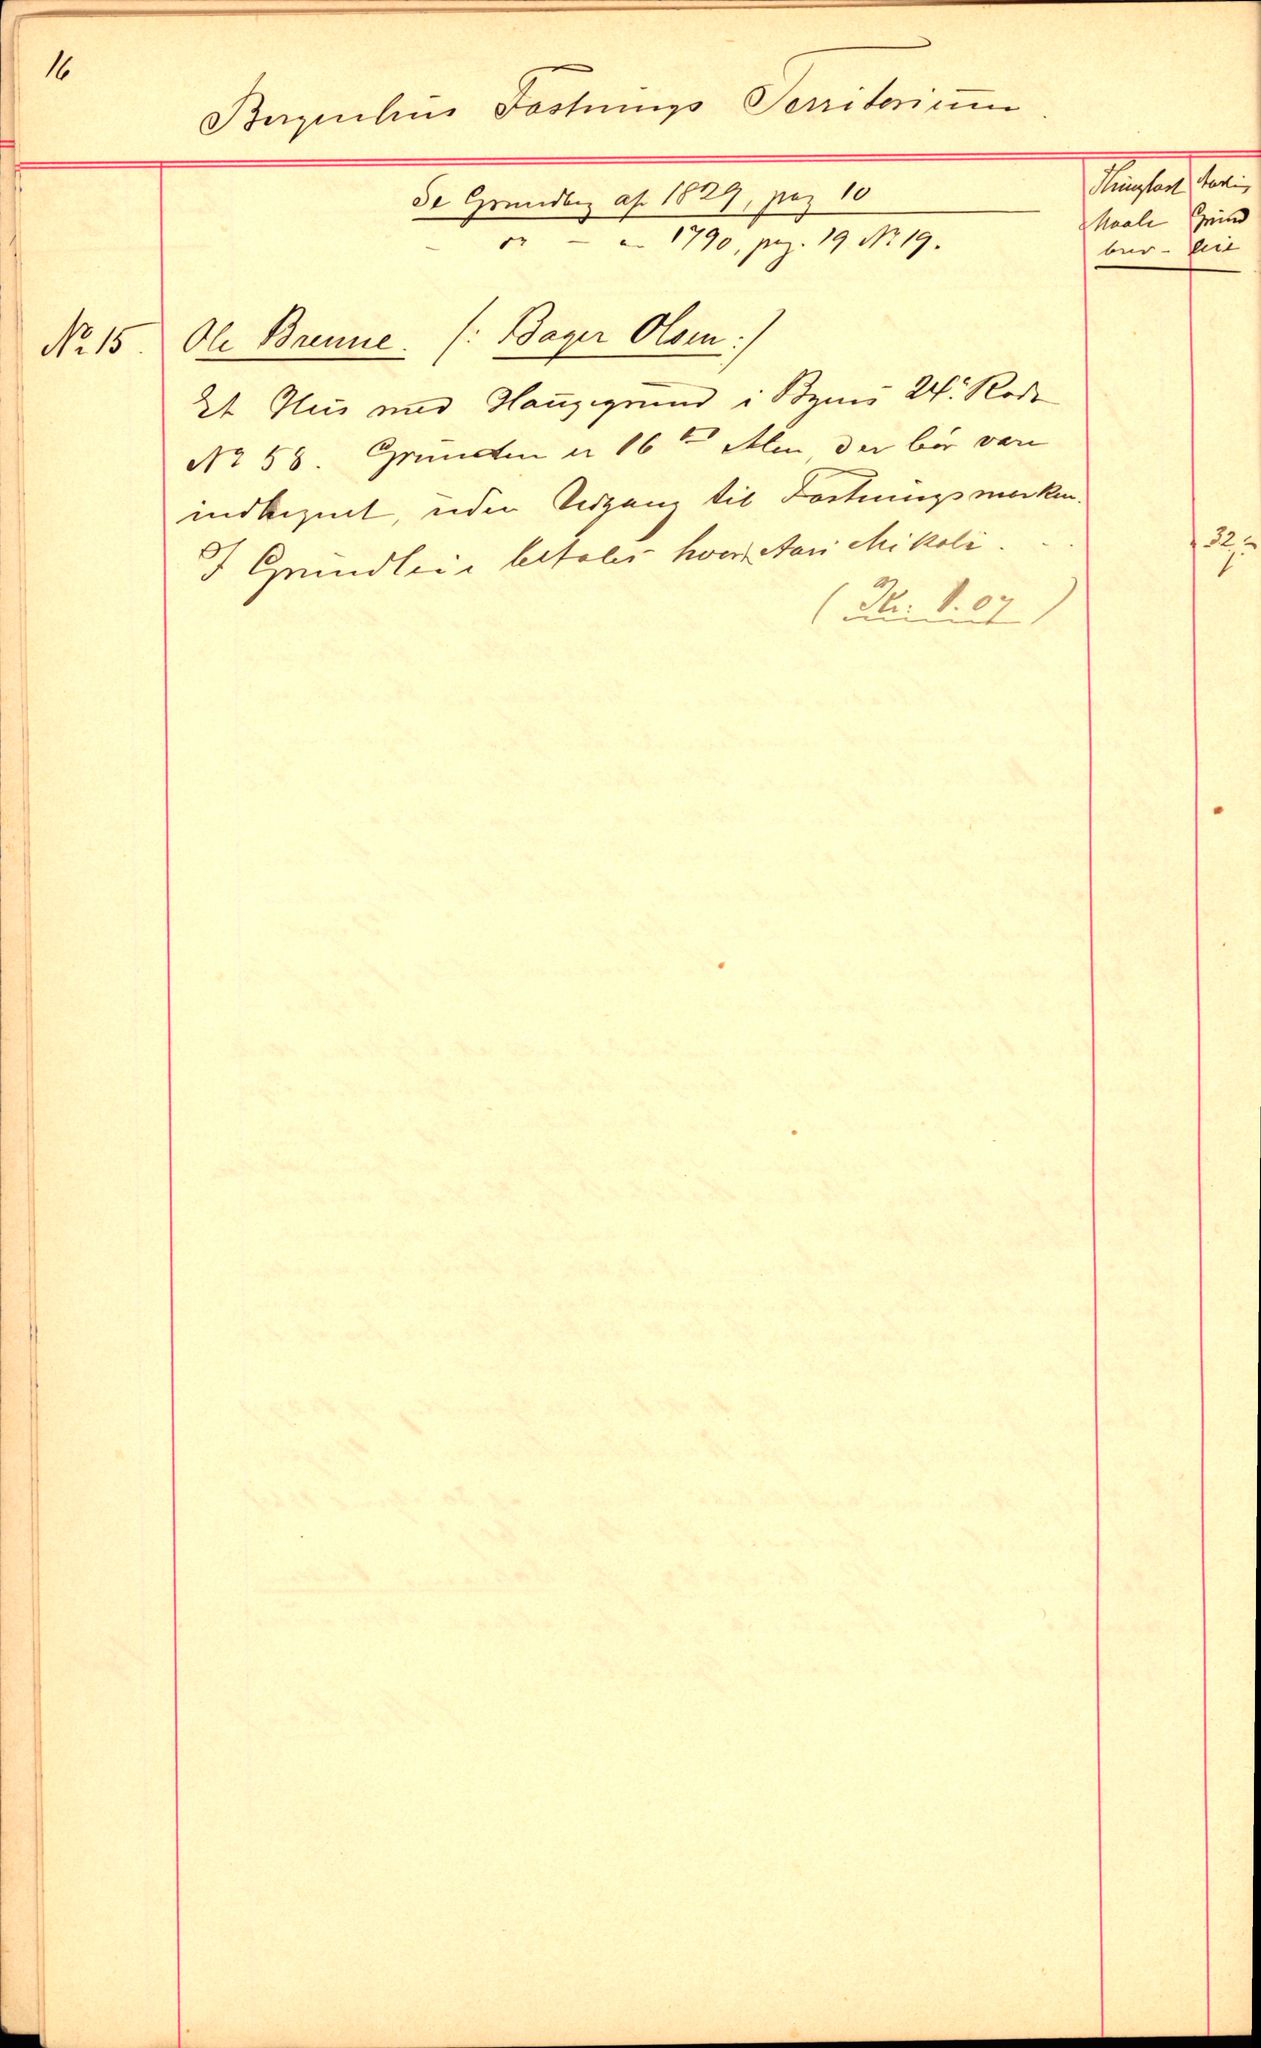 16
Bergenhus Fæstnings Territorium.
Se Grundbog af 1829, pag 10
— Do — — 1790, pag. 19 No 19.
Thinglæst Maale brev —
Aarlig Grund leie
No 15.
Ole Brenne. (: Bager Olsen :)
Et Hus med Haugegrund i Byens 24de Rode
No 58. Grunden er 16 Alen, der bør være
indhegnet, uden Udgang til Fæstningsmarken.
I Grundleie betales hvert Aars Mikeli . . .
32
(Kr. 1.07)